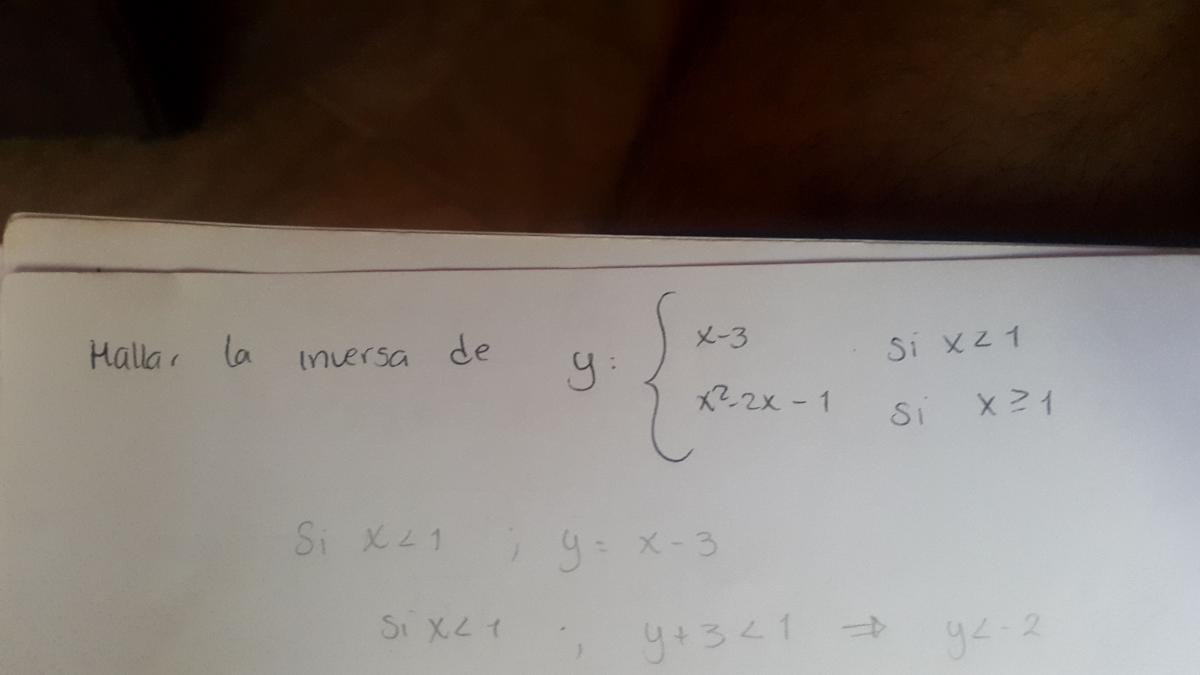 Hallar la inversa de y: { x-3 si x < 1
x²-2x-1 si x ≥ 1
Si x<1 ; y = x-3
si x<1 ; y+3<1 ⇒ y<-2